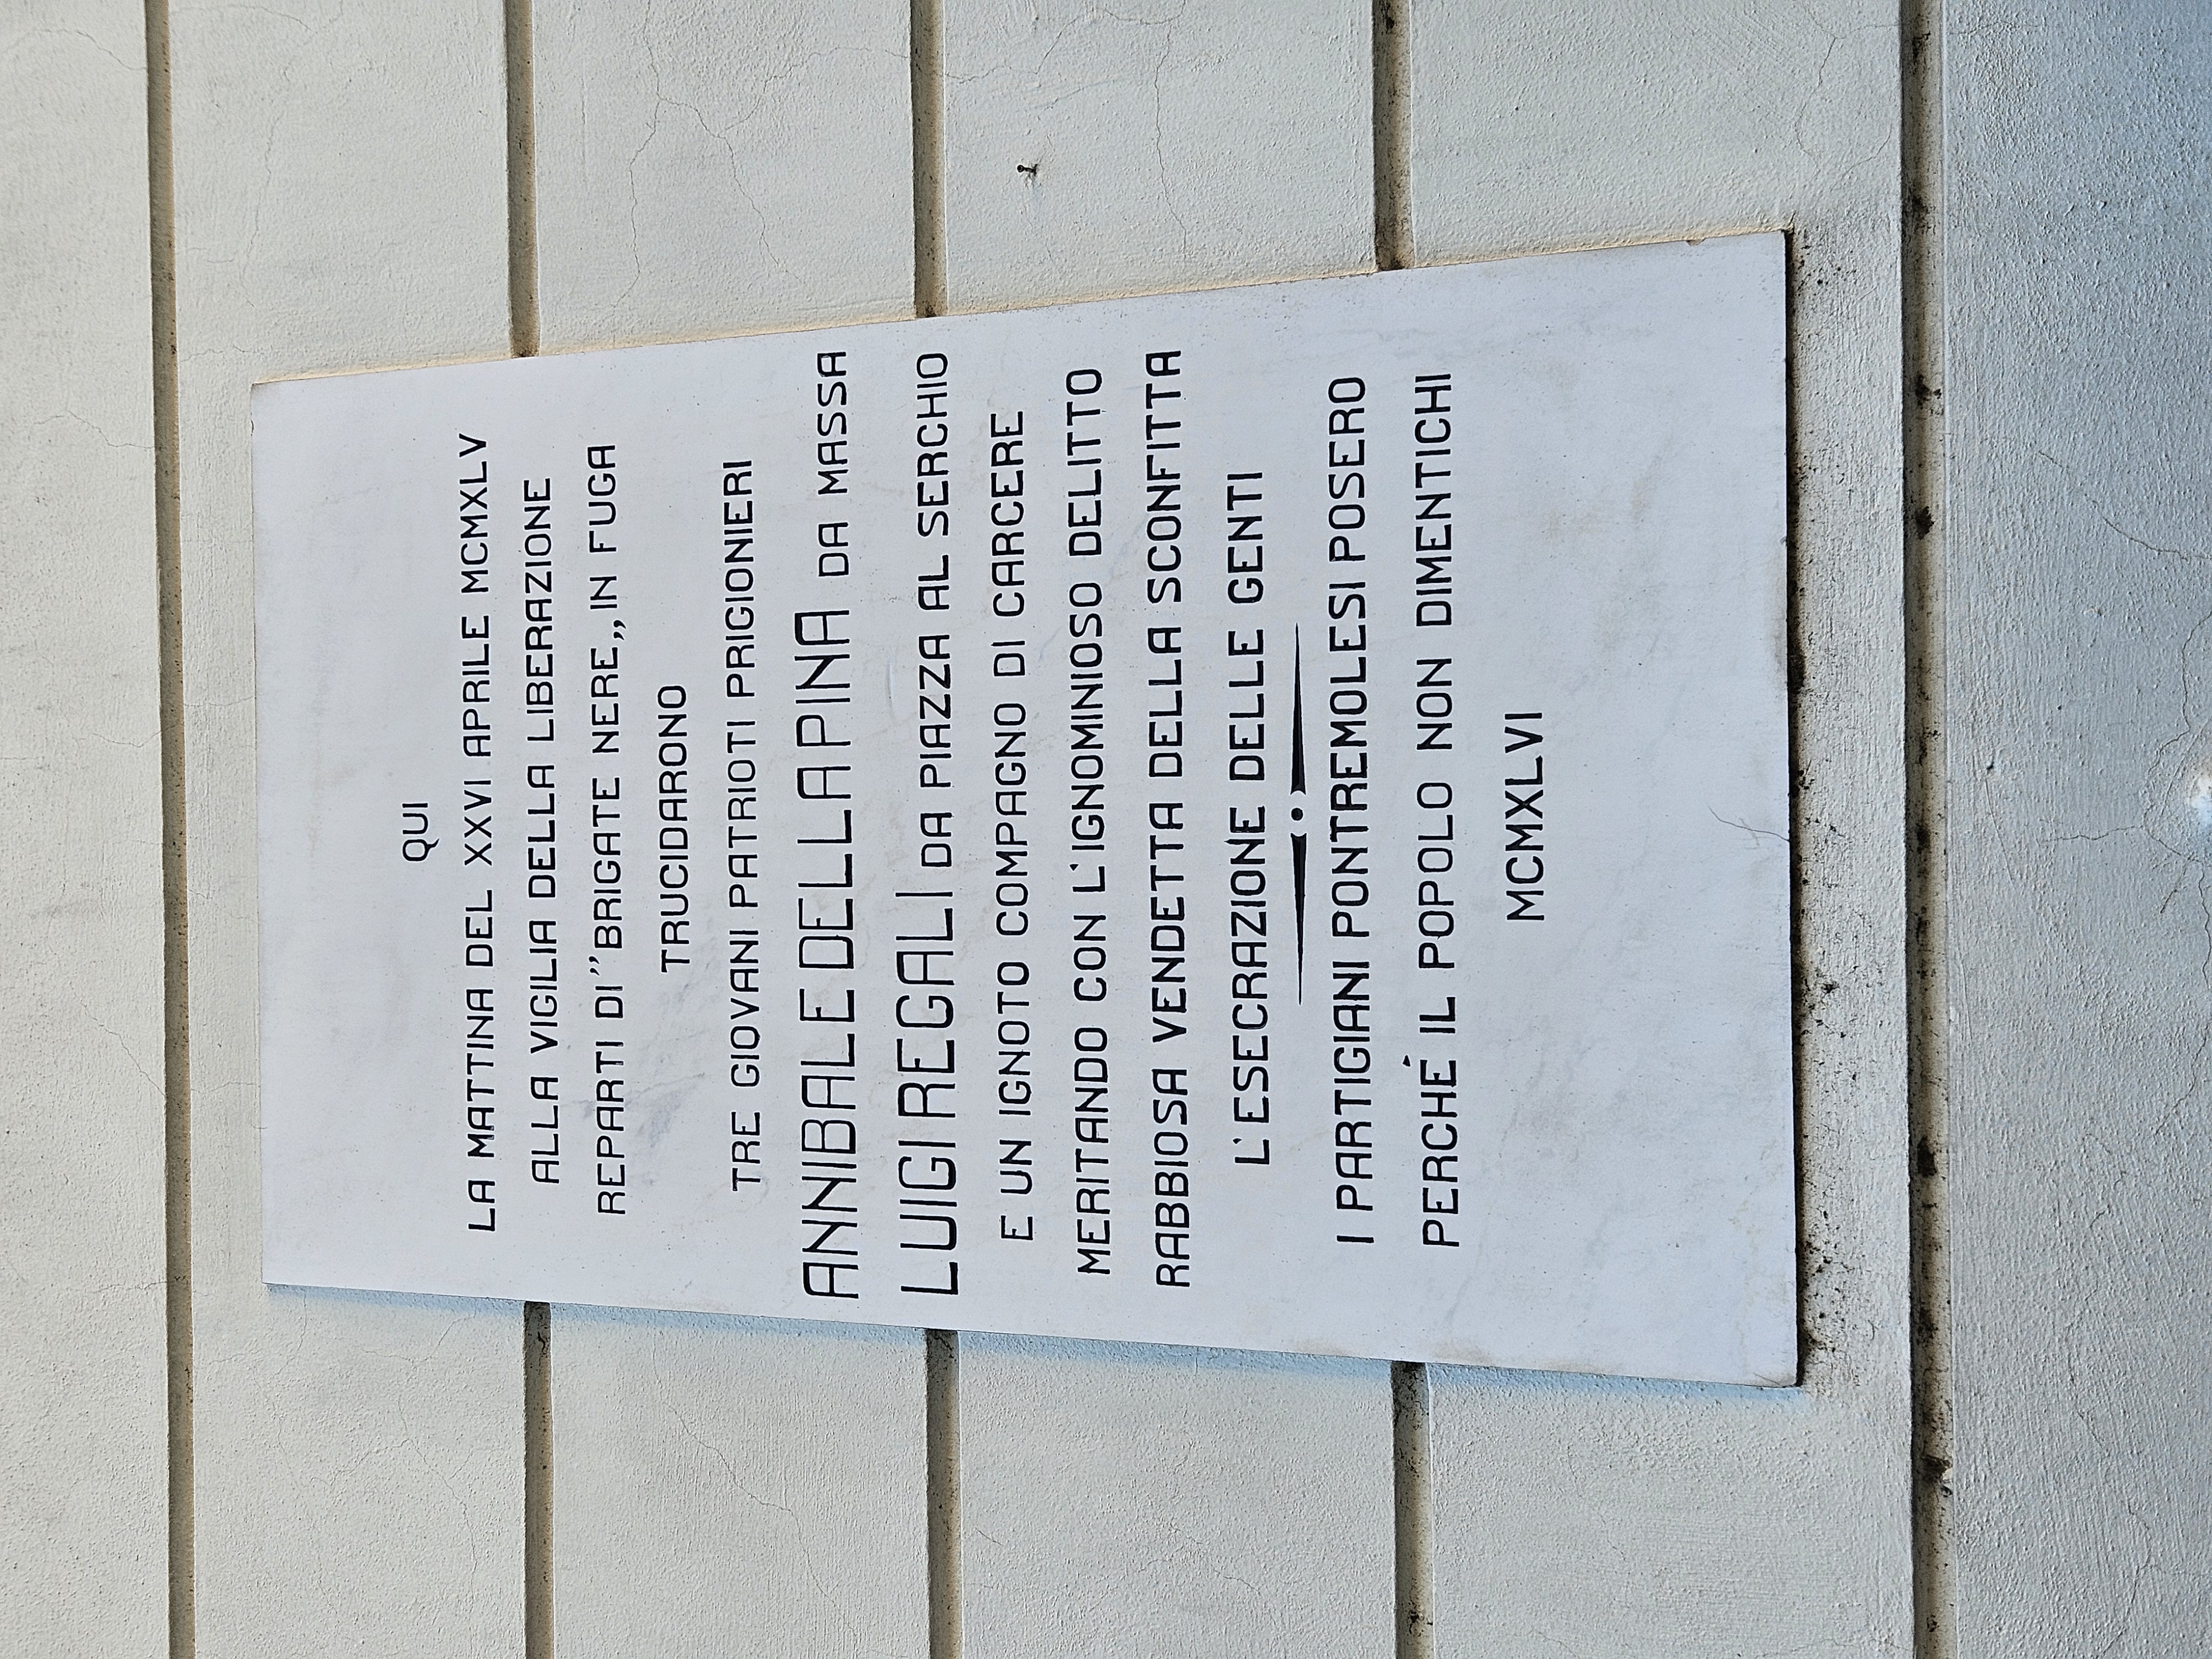 QUI
LA MATTINA DEL XXVI APRILE MCMXLV
ALLA VIGILIA DELLA LIBERAZIONE
REPARTI DI "BRIGATE NERE„ IN FUGA
TRUCIDARONO
TRE GIOVANI PATRIOTI PRIGIONIERI
ANNIBALE DELLA PINA DA MASSA
LUIGI REGALI DA PIAZZA AL SERCHIO
E UN IGNOTO COMPAGNO DI CARCERE
MERITANDO CON L'IGNOMINIOSO DELITTO
RABBIOSA VENDETTA DELLA SCONFITTA
L'ESECRAZIONE DELLE GENTI
I PARTIGIANI PONTREMOLESI POSERO
PERCHÉ IL POPOLO NON DIMENTICHI
MCMXLVI